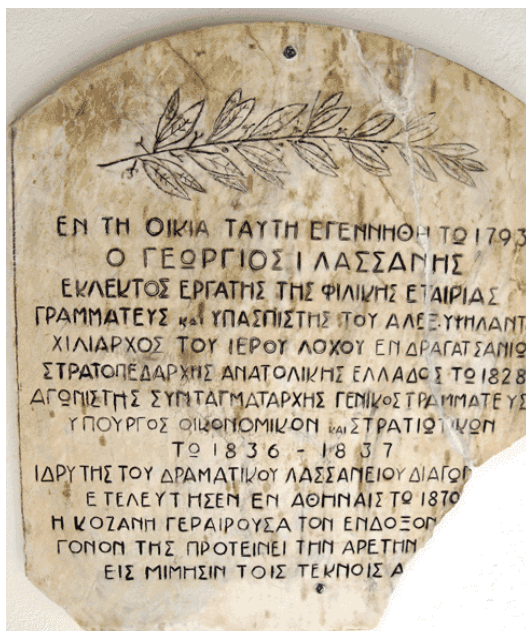 ΕΝ ΤΗ ΟΙΚΙΑ ΤΑΥΤΗ ΕΓΕΝΝΗΘΗ ΤΩ 1793
Ο ΓΕΩΡΓΙΟΣ Ι ΛΑΣΣΑΝΗΣ
ΕΚΛΕΚΤΟΣ ΕΡΓΑΤΗΣ ΤΗΣ ΦΙΛΙΚΗΣ ΕΤΑΙΡΙΑΣ
ΓΡΑΜΜΑΤΕΥΣ και ΥΠΑΣΠΙΣΤΗΣ ΤΟΥ ΑΛΕΞ·ΥΨΗΛΑΝΤ
ΧΙΛΙΑΡΧΟΣ ΤΟΥ ΙΕΡΟΥ ΛΟΧΟΥ ΕΝ ΔΡΑΓΑΤΣΑΝΙΩ
ΣΤΡΑΤΟΠΕΔΑΡΧΗΣ ΑΝΑΤΟΛΙΚΗΣ ΕΛΛΑΔΟΣ ΤΩ 1828
ΑΓΩΝΙΣΤΗΣ ΣΥΝΤΑΓΜΑΤΑΡΧΗΣ ΓΕΝΙΚΟΣ ΓΡΑΜΜΑΤΕΥΣ
ΥΠΟΥΡΓΟΣ ΟΙΚΟΝΟΜΙΚΩΝ και ΣΤΡΑΤΙΩΤΙΚΩΝ
ΤΩ 1836 - 1837
ΙΔΡΥΤΗΣ ΤΟΥ ΔΡΑΜΑΤΙΚΟΥ ΛΑΣΣΑΝΕΙΟΥ ΔΙΑΓΩΝ
ΕΤΕΛΕΥΤΗΣΕΝ ΕΝ ΑΘΗΝΑΙΣ ΤΩ 1870
Η ΚΟΖΑΝΗ ΓΕΡΑΙΡΟΥΣΑ ΤΟΝ ΕΝΔΟΞΟΝ
ΓΟΝΟΝ ΤΗΣ ΠΡΟΤΕΙΝΕΙ ΤΗΝ ΑΡΕΤΗΝ
ΕΙΣ ΜΙΜΗΣΙΝ ΤΟΙΣ ΤΕΚΝΟΙΣ Α